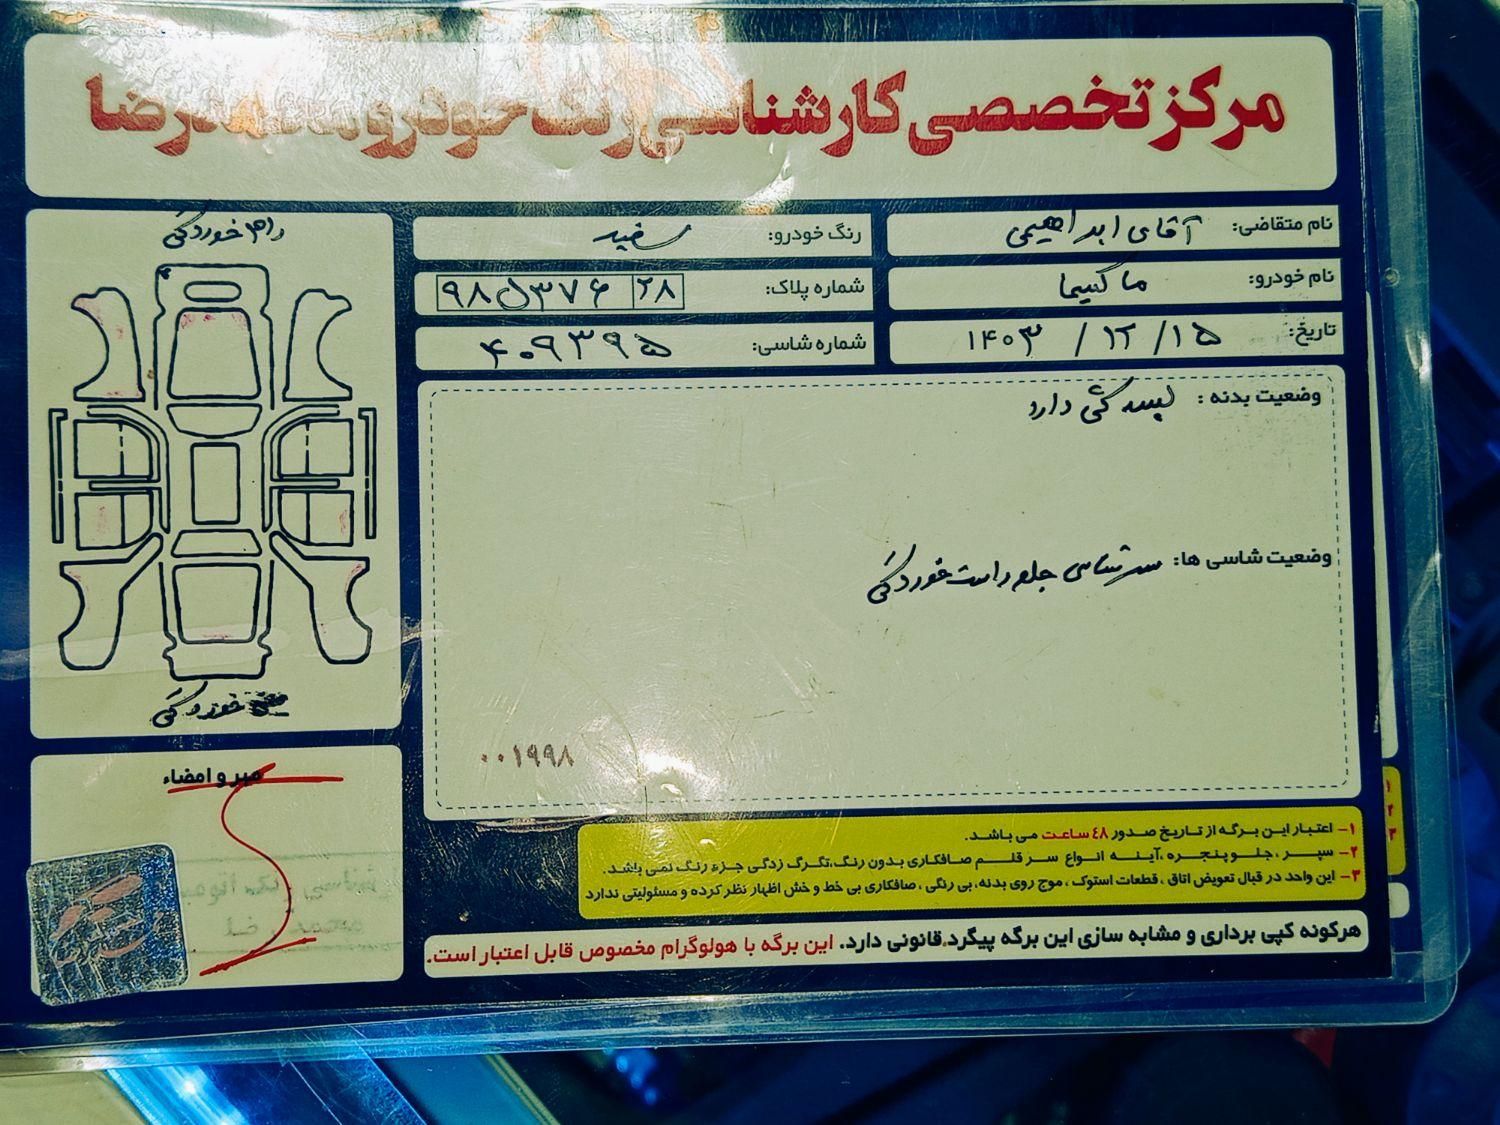 مرکز تخصصی کارشناسی رنگ خودرو محمدرضا
نام متقاضی: آقای ابراهیمی
رنگ خودرو: سفید
نام خودرو: ماکسیما
شماره پلاک: ۹۸ل۳۷۶ ۲۸
تاریخ: ۱۴۰۳ / ۱۲ / ۱۵
شماره شاسی: ۴۰۹۳۹۵
وضعیت بدنه : لیسه گی دارد
وضعیت شاسی ها: سرشاسی جلو راست خوردگی
۰۰۱۹۹۸
رام خوردگی
خوردگی
مهر و امضاء
۱- اعتبار این برگه از تاریخ صدور ۴۸ ساعت می باشد.
۲- سپر ، جلو پنجره ،آینه انواع سر قلم صافکاری بدون رنگ،تگرگ زدگی جزء رنگ نمی باشد.
۳- این واحد در قبال تعویض اتاق ، قطعات استوک ، موج روی بدنه، بی رنگی ، صافکاری بی خط و خش اظهار نظر کرده و مسئولیتی ندارد
هرگونه کپی برداری و مشابه سازی این برگه پیگرد قانونی دارد. این برگه با هولوگرام مخصوص قابل اعتبار است.